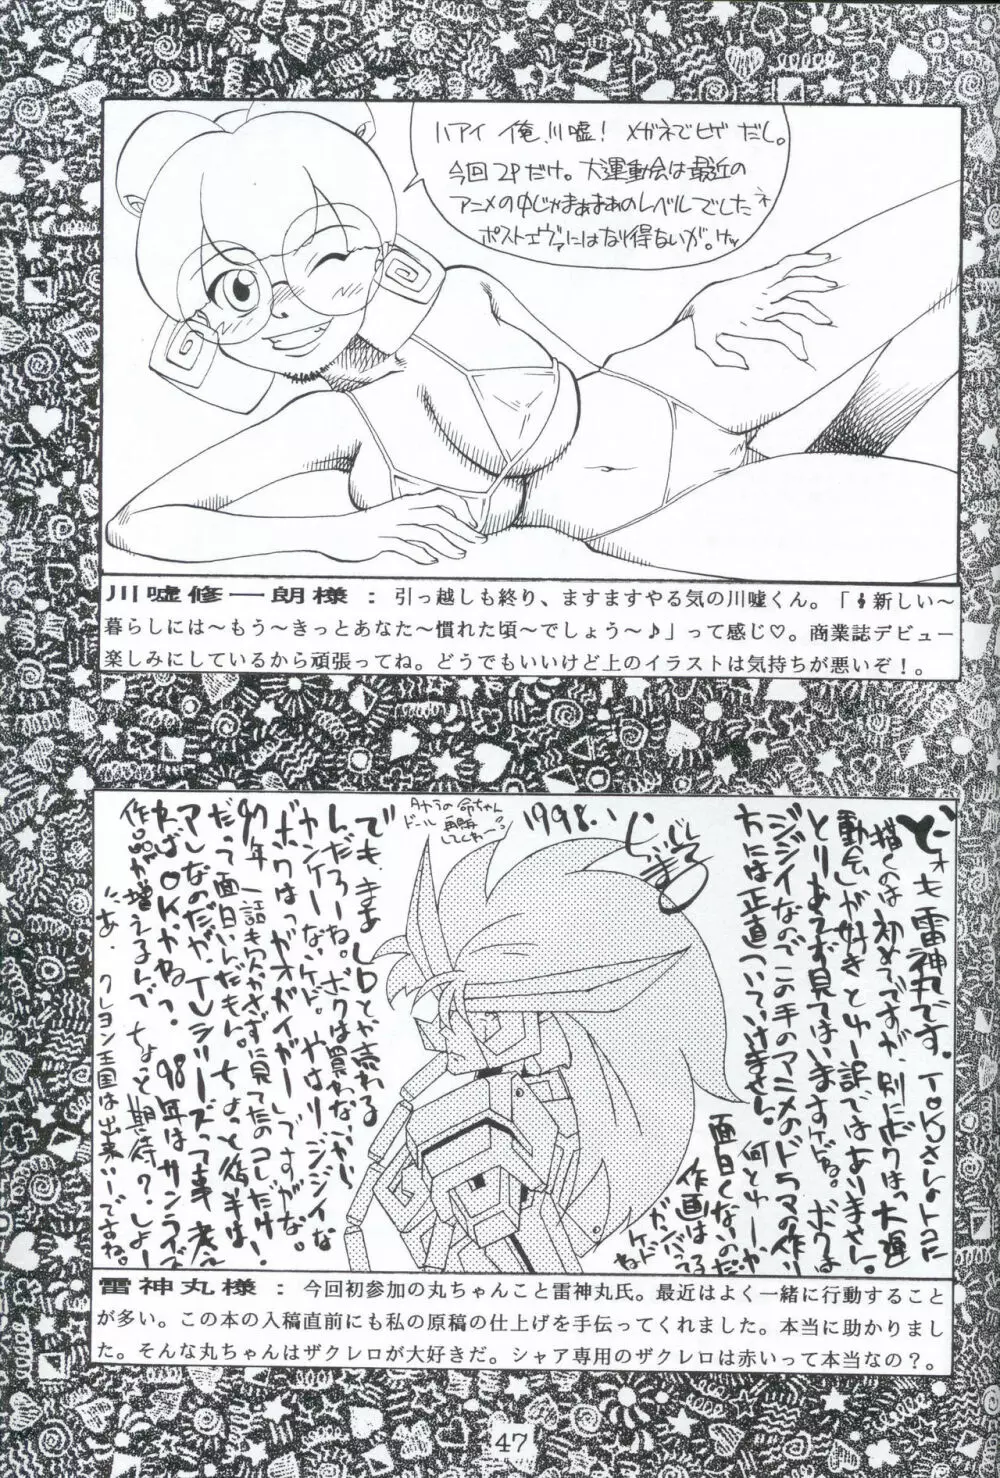 ハアイ 俺、川嘘! メガネでヒゲ だし。
今回 2Pだけ。大運動会は最近の
アニメの中じゃまぁまぁのレベルでしたネ
ポストエヴァにはなり得ないが。ケッ
川嘘修一朗様 : 引っ越しも終り、ますますやる気の川嘘くん。「新しい〜
暮らしには〜もう〜きっとあなた〜慣れた頃〜でしょう〜♪」って感じ♡。商業誌デビュー
楽しみにしているから頑張ってね。どうでもいいけど上のイラストは気持ちが悪いぞ!。
どーォキ 雷神丸です。TOKJさんのトコに
描くのは初めてですが、別にボクはっ大運
動会しが好きとゆー訳ではありません。
とりあえず見てはいますけどね。ボクは
ジジイなのでこの手のアニメのドラマの作り
方には正直ついていけません。何とゆーか
面白くないのだ
作画は
ガンバッてる
ねケド
1998.1
アキラの命ちゃん
ドール 再販
してくれー
でも、まあLDとか売れる
んだろーね。ボクは買わないから
カンケーないケド。やはりジジイな
ボクはっガオガイガーしですがな。
97年 一話も欠かさずに見てたのコレだけ!
だって面白いんだもん。ちょっと後半は
アレなのだが、TVシリーズって事考え
ればOKかね?。98年はサンライズ
作品が増えるんで ちょっと期待?しよー
"あ. クレヨン王国は出来いーですね。
雷神丸様 : 今回初参加の丸ちゃんこと雷神丸氏。最近はよく一緒に行動すること
が多い。この本の入稿直前にも私の原稿の仕上げを手伝ってくれました。本当に助かりまし
た。そんな丸ちゃんはザクレロが大好きだ。シャア専用のザクレロは赤いって本当なの?。
47